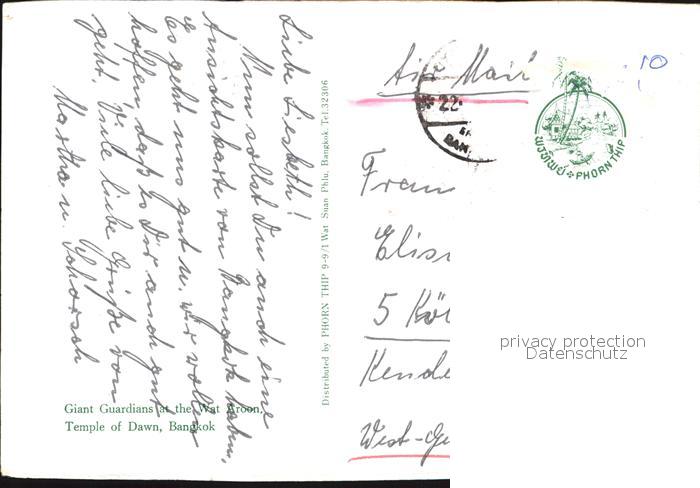 Liebe Liesbeth!
Nun sollst Du auch eine
Ansichtskarte von Bangkok haben.
Es geht uns gut u. wir wollen
hoffen daß es Dir auch gut
geht. Viele liebe Grüße von
Martha u. Schorsch
Giant Guardians at the Wat Aroon,
Temple of Dawn, Bangkok
Distributed by PHORN THIP 9-9/1 Wat Suan Phlu, Bangkok Tel.32306
Air Mail
22.
BAN
10
พรทิพย์ PHORN THIP
5 Köl
West-Ge
privacy protection
Datenschutz